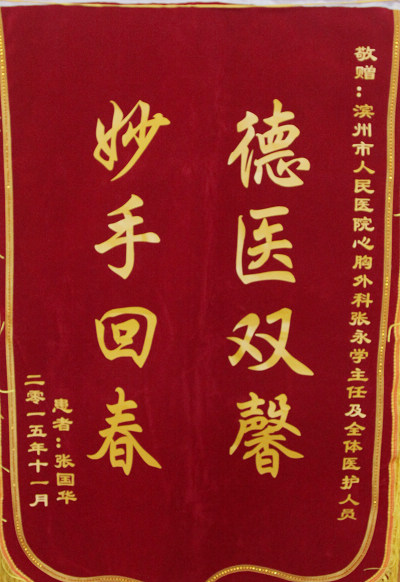 敬赠：滨州市人民医院心胸外科张永学主任及全体医护人员
德医双馨
妙手回春
患者：张国华
二零一五年十一月